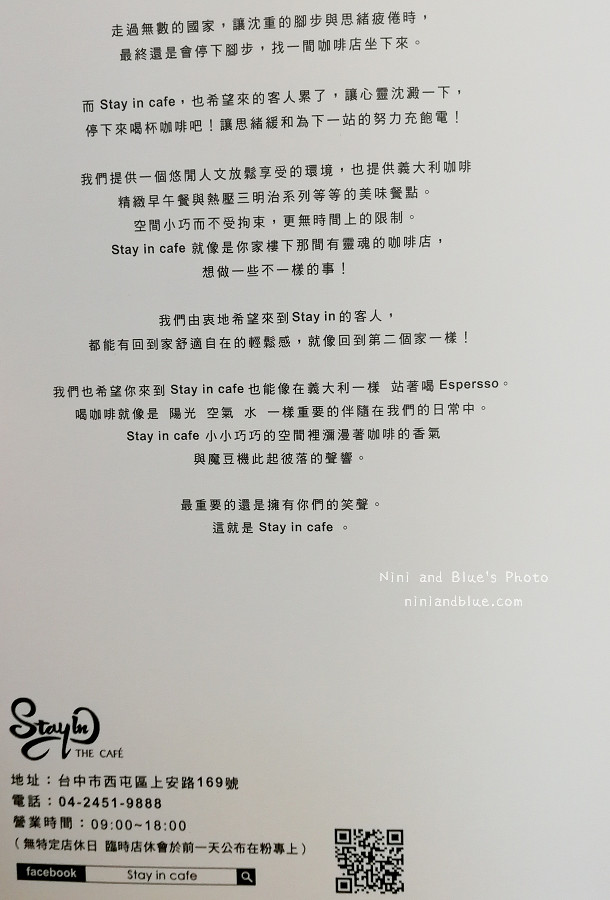 走過無數的國家，讓沈重的腳步與思緒疲倦時，
最終還是會停下腳步，找一間咖啡店坐下來。
而 Stay in cafe，也希望來的客人累了，讓心靈沈澱一下，
停下來喝杯咖啡吧！讓思緒緩和為下一站的努力充飽電！
我們提供一個悠閒人文放鬆享受的環境，也提供義大利咖啡
精緻早午餐與熱壓三明治系列等等的美味餐點。
空間小巧而不受拘束，更無時間上的限制。
Stay in cafe 就像是你家樓下那間有靈魂的咖啡店，
想做一些不一樣的事！
我們由衷地希望來到 Stay in 的客人，
都能有回到家舒適自在的輕鬆感，就像回到第二個家一樣！
我們也希望你來到 Stay in cafe 也能像在義大利一樣 站著喝 Espersso。
喝咖啡就像是 陽光 空氣 水 一樣重要的伴隨在我們的日常中。
Stay in cafe 小小巧巧的空間裡瀰漫著咖啡的香氣
與魔豆機此起彼落的聲響。
最重要的還是擁有你們的笑聲。
這就是 Stay in cafe 。
Nini and Blue's Photo
niniandblue.com
Stay in
THE CAFÉ
地址：台中市西屯區上安路169號
電話：04-2451-9888
營業時間：09:00~18:00
（無特定店休日 臨時店休會於前一天公布在粉專上）
facebook Stay in cafe